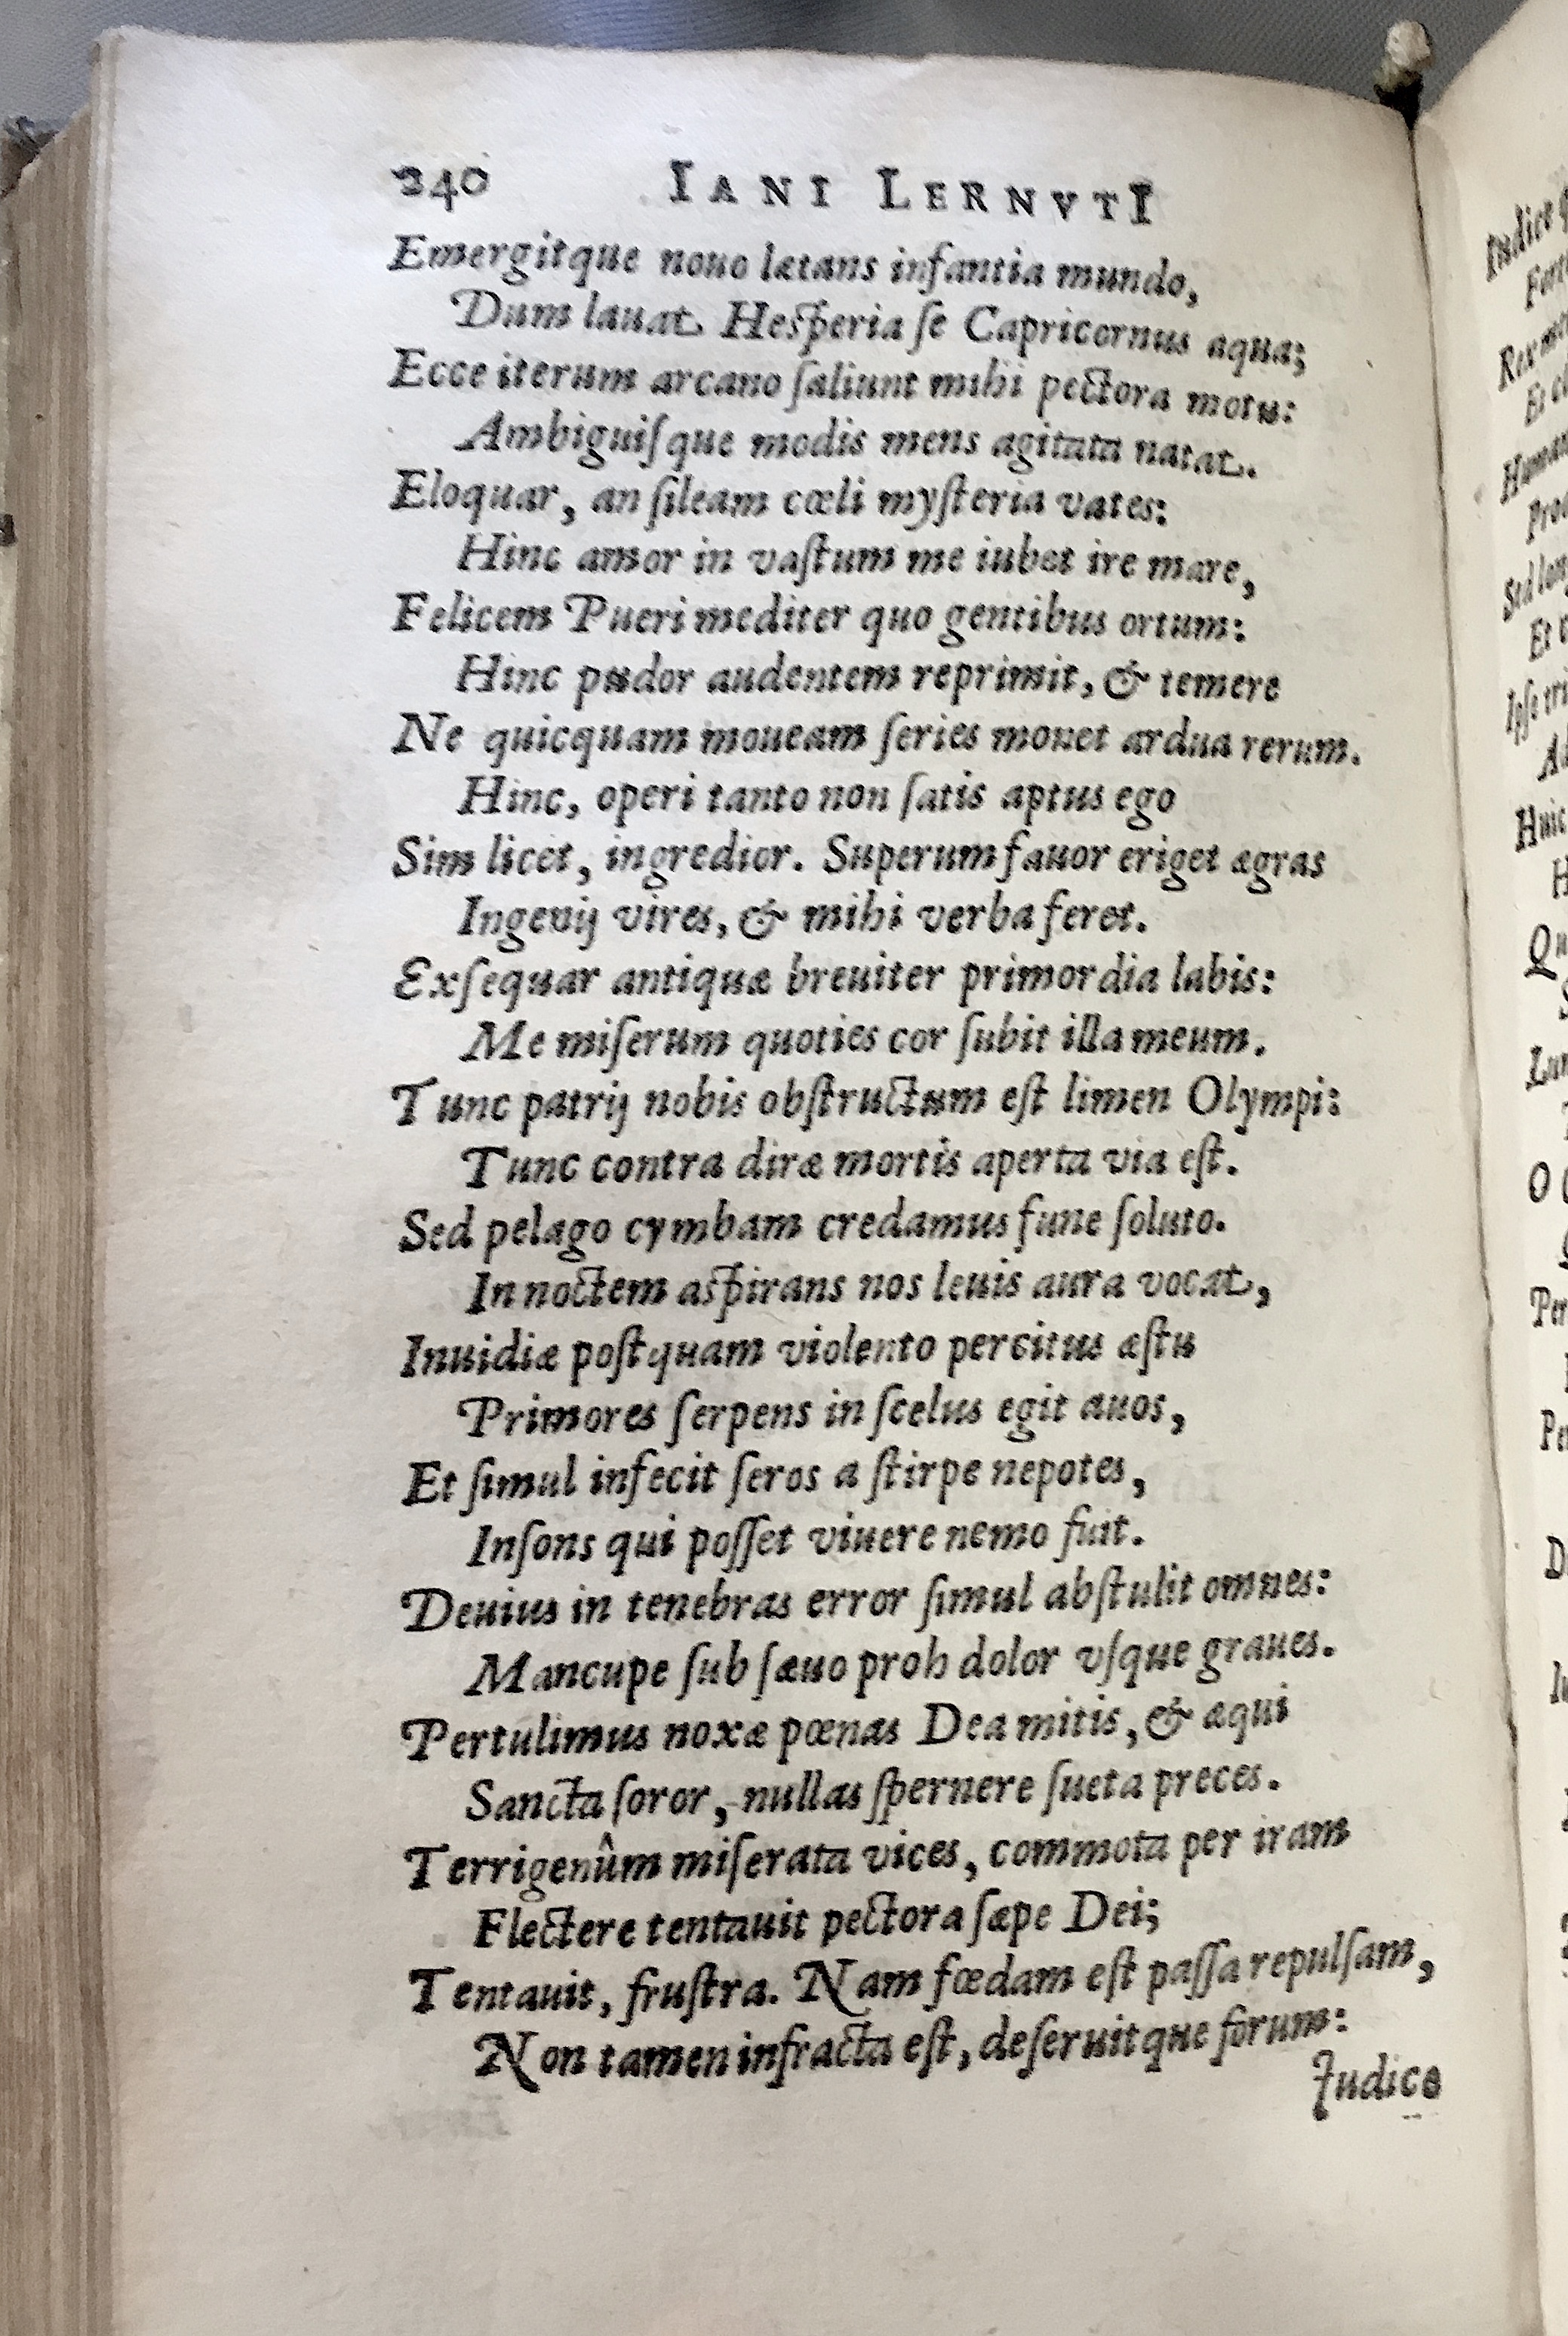 240 IANI LERNVTI
Emergitque nouo lætans infantia mundo,
Dum lauat Hesperia ſe Capricornus aqua;
Ecce iterum arcano ſaliunt mihi pectora motu:
Ambiguiſque modis mens agitata natat.
Eloquar, an ſileam cœli myſteria vates:
Hinc amor in vaſtum me iubet ire mare,
Felicem Pueri mediter quo gentibus ortum:
Hinc pudor audentem reprimit, & temere
Ne quicquam moueam ſeries monet ardua rerum.
Hinc, operi tanto non ſatis aptus ego
Sim licet, ingredior. Superum fauor eriget ægras
Ingenij vires, & mihi verba feret.
Exſequar antiquæ breuiter primordia labis:
Me miſerum quoties cor ſubit illa meum.
Tunc patrij nobis obſtructum eſt limen Olympi:
Tunc contra diræ mortis aperta via eſt.
Sed pelago cymbam credamus fune ſoluto.
In noctem aspirans nos leuis aura vocat,
Inuidiæ poſtquam violento percitus æſtu
Primores ſerpens in ſcelus egit auos,
Et ſimul infecit ſeros a ſtirpe nepotes,
Inſons qui poſſet viuere nemo fuit.
Deuius in tenebras error ſimul abſtulit omnes:
Mancupe ſub ſæuo proh dolor vſque graues.
Pertulimus noxæ pœnas Dea mitis, & æqui
Sancta ſoror, nullas ſpernere ſueta preces.
Terrigenûm miſerata vices, commota per iram
Flectere tentauit pectora ſæpe Dei;
Tentauit, fruſtra. Nam fœdam eſt paſſa repulſam,
Non tamen infracta eſt, deſeruitque forum:
Iudice
Iudice
Rex
Et
Sed
Et
Ipſe
Huic
O